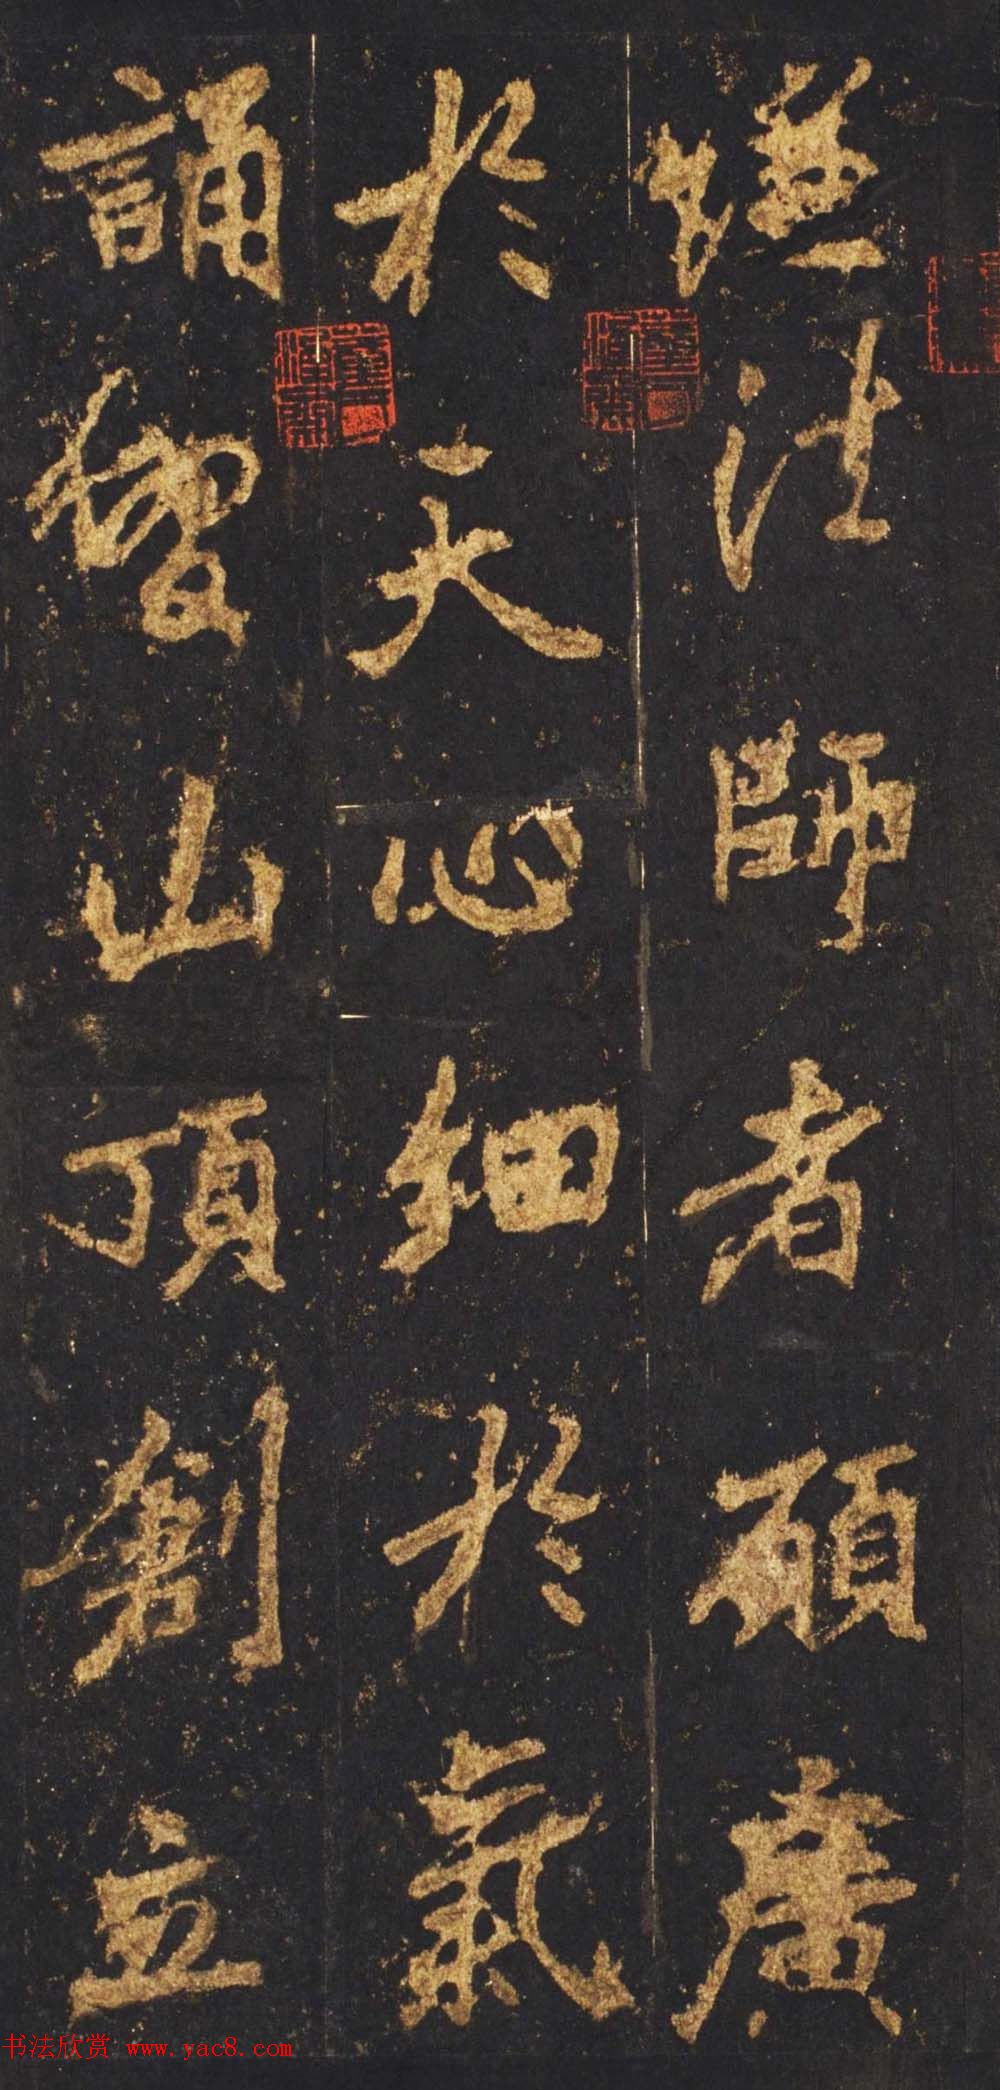 法師者碩廣
於天心細於氣
誦習山頂創立
书法欣赏 www.yac8.com